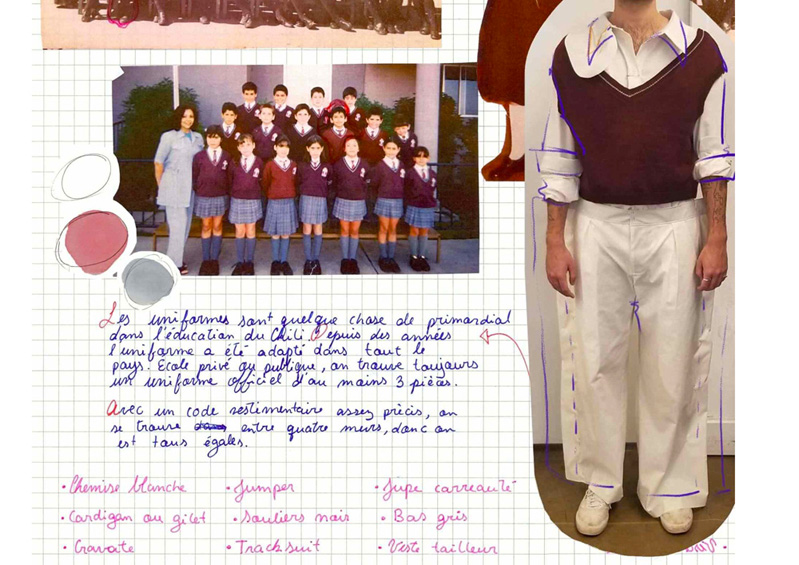 Les uniformes sont quelque chose de primordial
dans l'éducation du Chili. Depuis des années
l'uniforme a été adapté dans tout le
pays. Ecole privé ou publique, on trouve toujours
un uniforme officiel d'au moins 3 pièces.
Avec un code vestimentaire assez précis, on
se trouve entre quatre murs, donc on
est tous égales.
• Chemise blanche • Jumper • Jupe carreauté
• Cardigan ou gilet • Souliers noir • Bas gris
• Cravate • Tracksuit • Veste tailleur